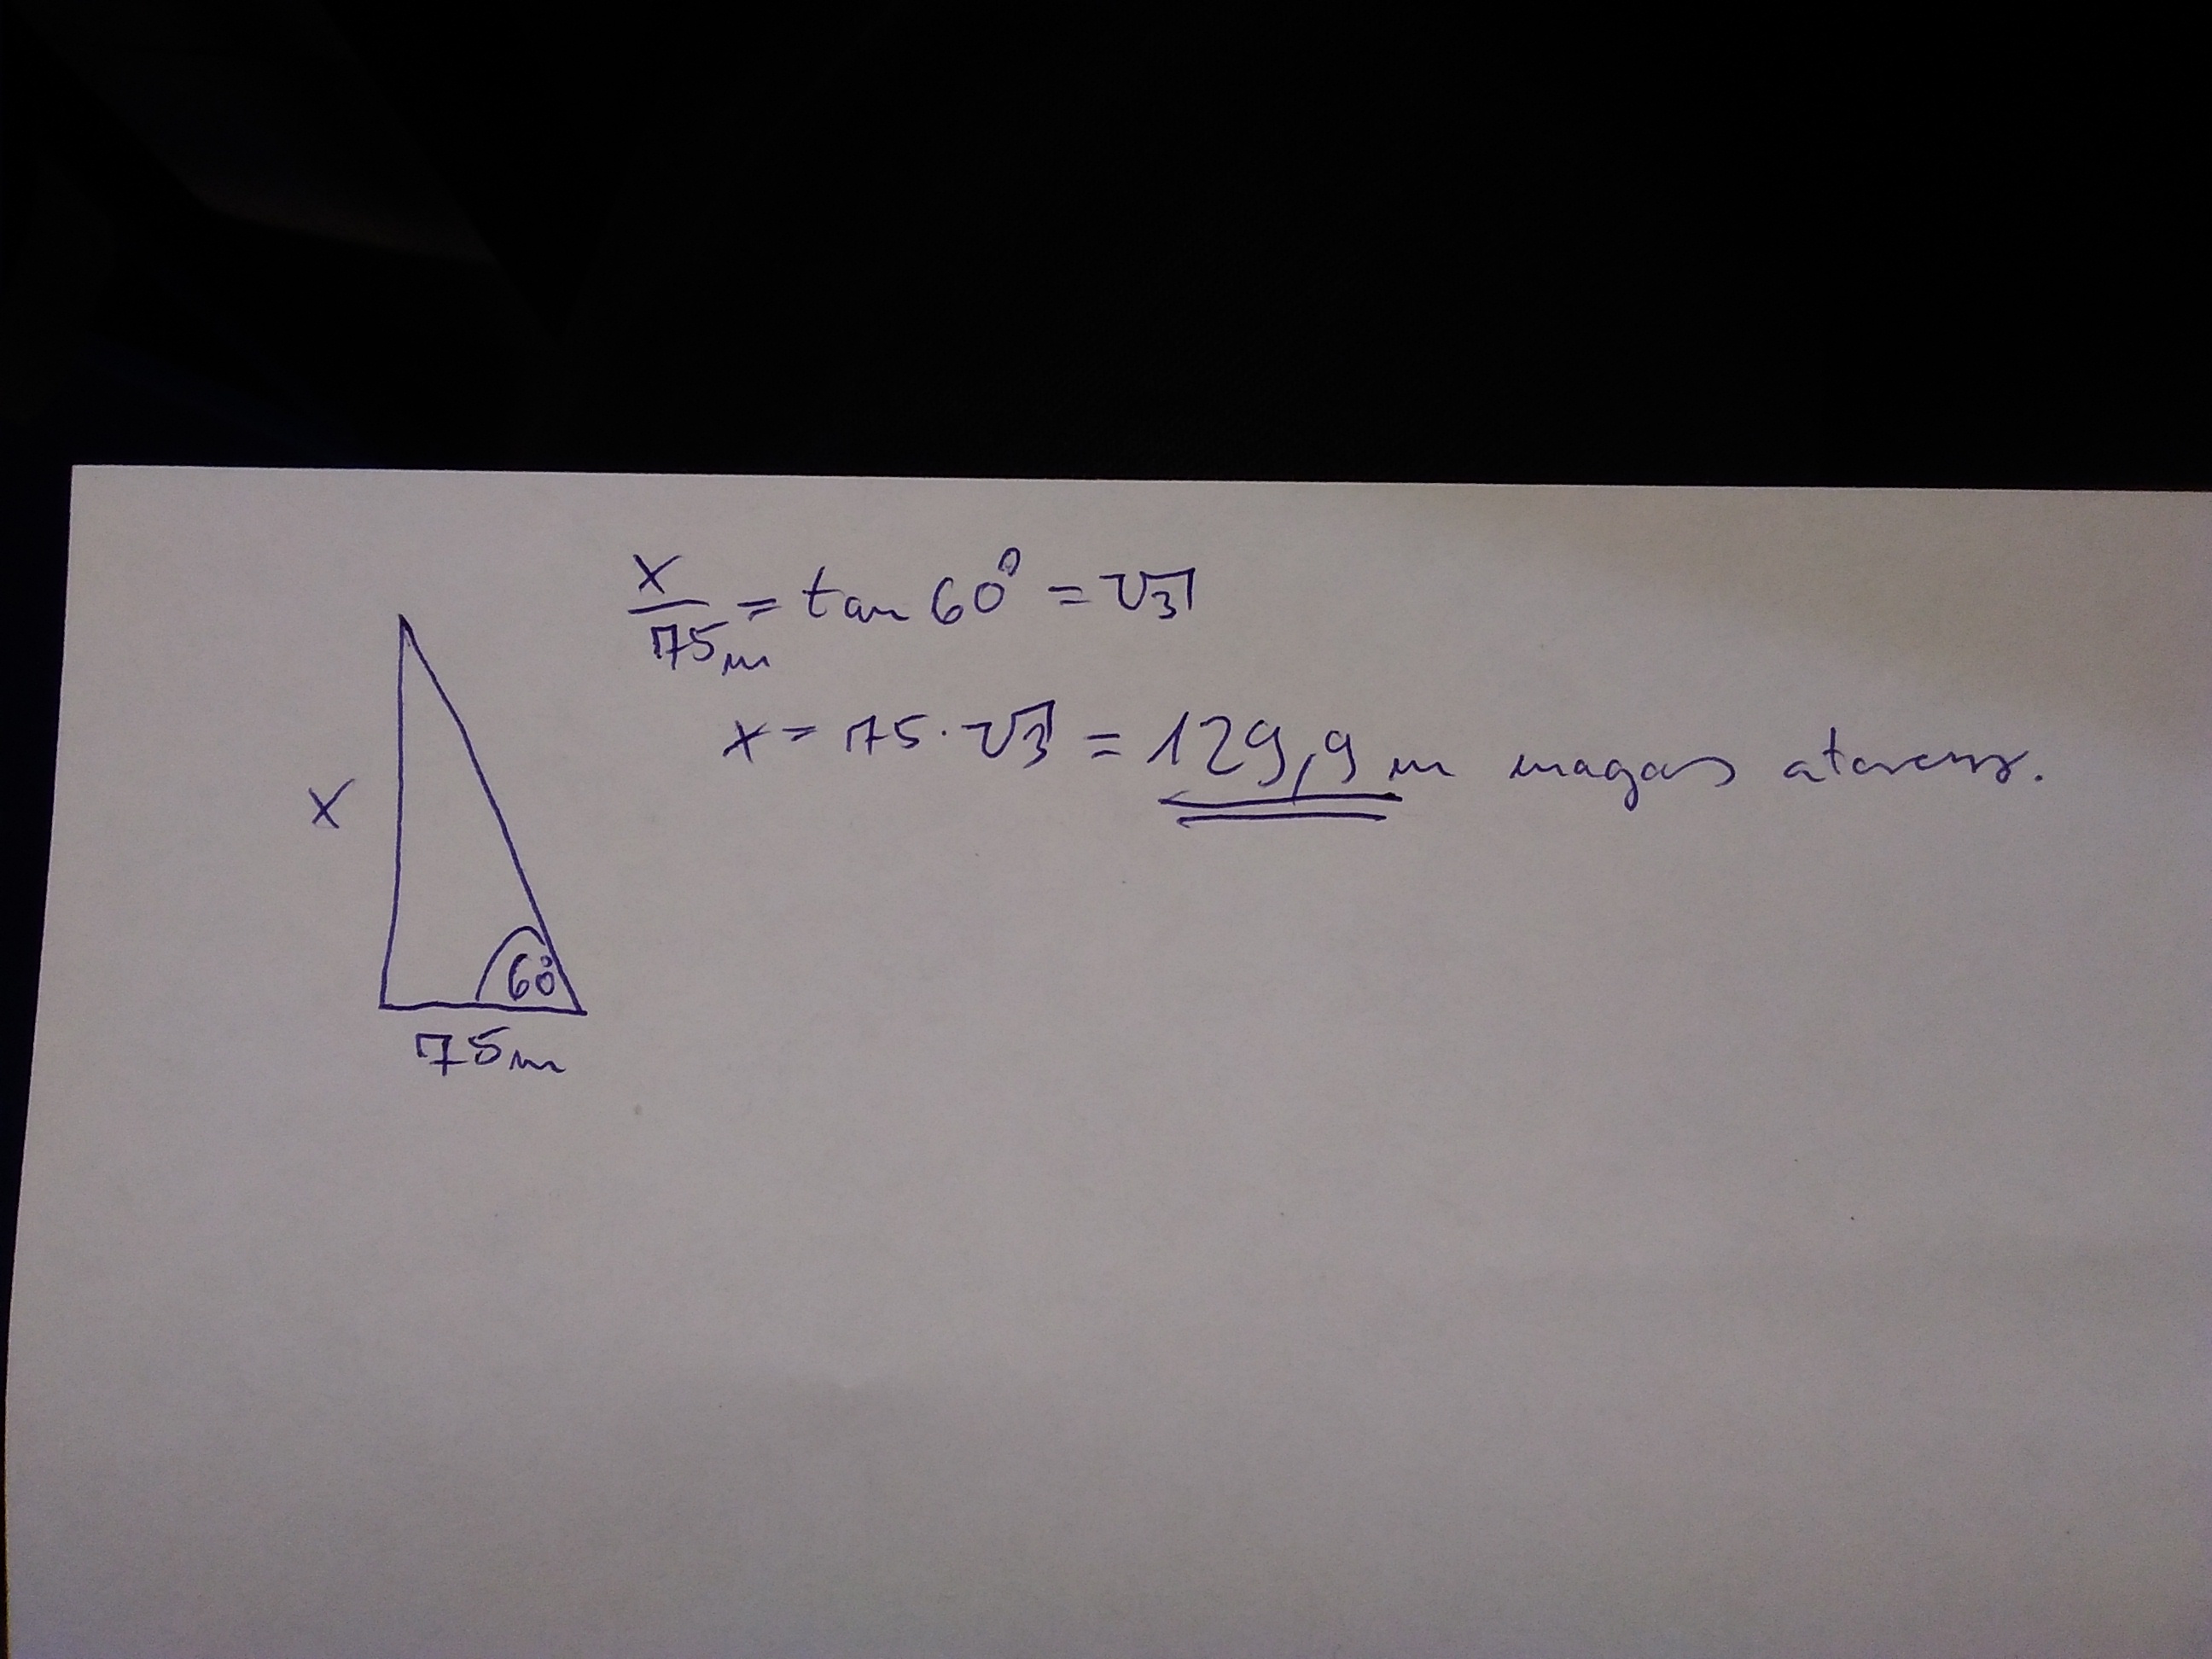 x/75m = tan 60° = √3
x = 75 · √3 = 129,9 m magas
x
60°
75m